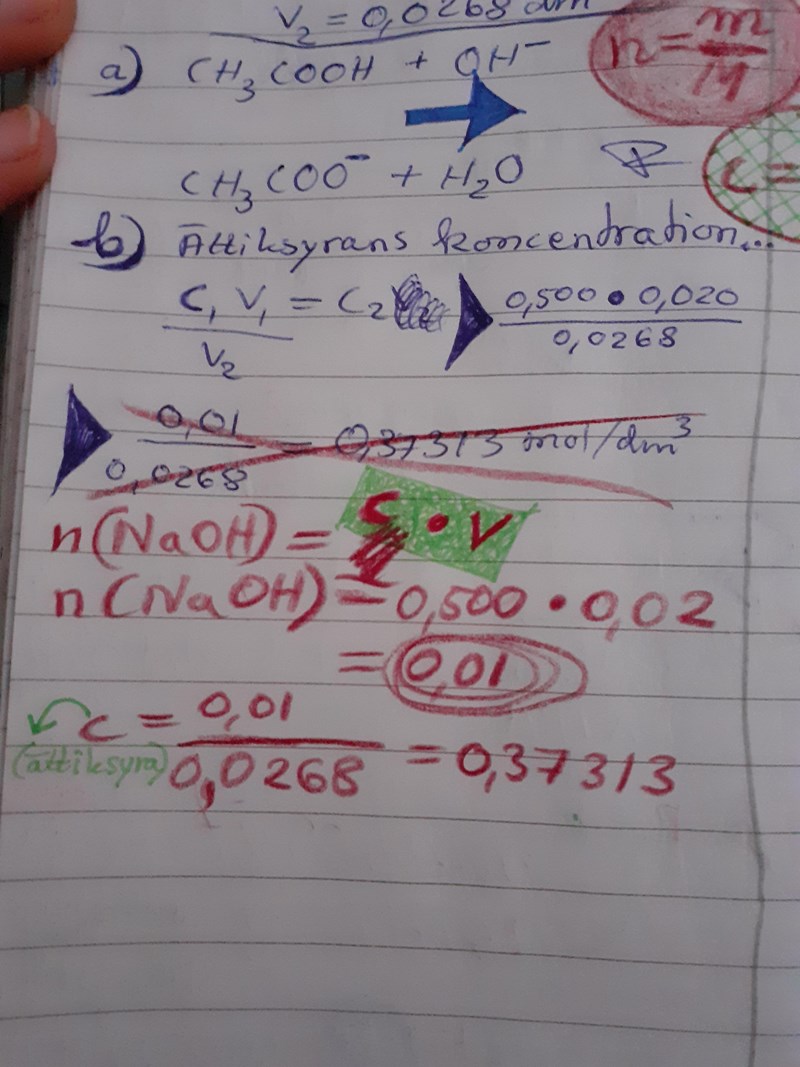 V₂ = 0,0268 dm
n = m/M
a) CH₃COOH + OH⁻
CH₃COO⁻ + H₂O
c =
b) Ättiksyrans koncentration...
C₁V₁/V₂ = C₂ 0,500 • 0,020/0,0268
0,01/0,0268 = 0,37313 mol/dm³
n(NaOH) = c • V
n(NaOH) = 0,500 • 0,02
= 0,01
c = 0,01/0,0268 = 0,37313
(ättiksyra)